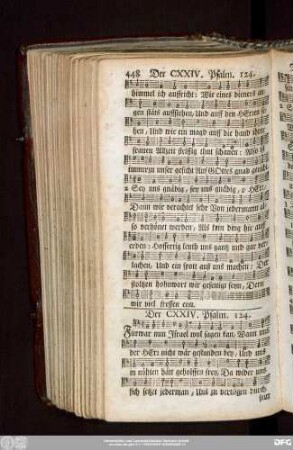 448 Der CXXIV. Psalm. 124.
himmel ich auffricht: Wie eines dieners au-
gen stäts auffsehen, Und auf den HErren se-
hen, Und wie ein magd auff die hand ihrer
frauen Allzeit fleissig thut schauen: Also
immerzu unser gesicht Auf GOttes gnad
2 Sey uns gnädig, sey uns gnädig, o HErr,
Dann wir verachtet sehr Von jedermann al-
so verhönet werden, Als kein ding hie auff
erden: Hoffertig leuth uns gantz und gar ver-
lachen, Und ein spott aus uns machen: Der
stoltzen hohnwort wir gesättigt seyn, Deren
wir viel fressen ein.
Der CXXIV. Psalm. 124.
Fürwar nun Israel wol sagen kan, Wann uns
der HErr nicht wär gestanden bey, Und uns
in nöhten hätt geholffen frey, Da wider uns
sich setzet jederman, Uns zu vertilgen durch